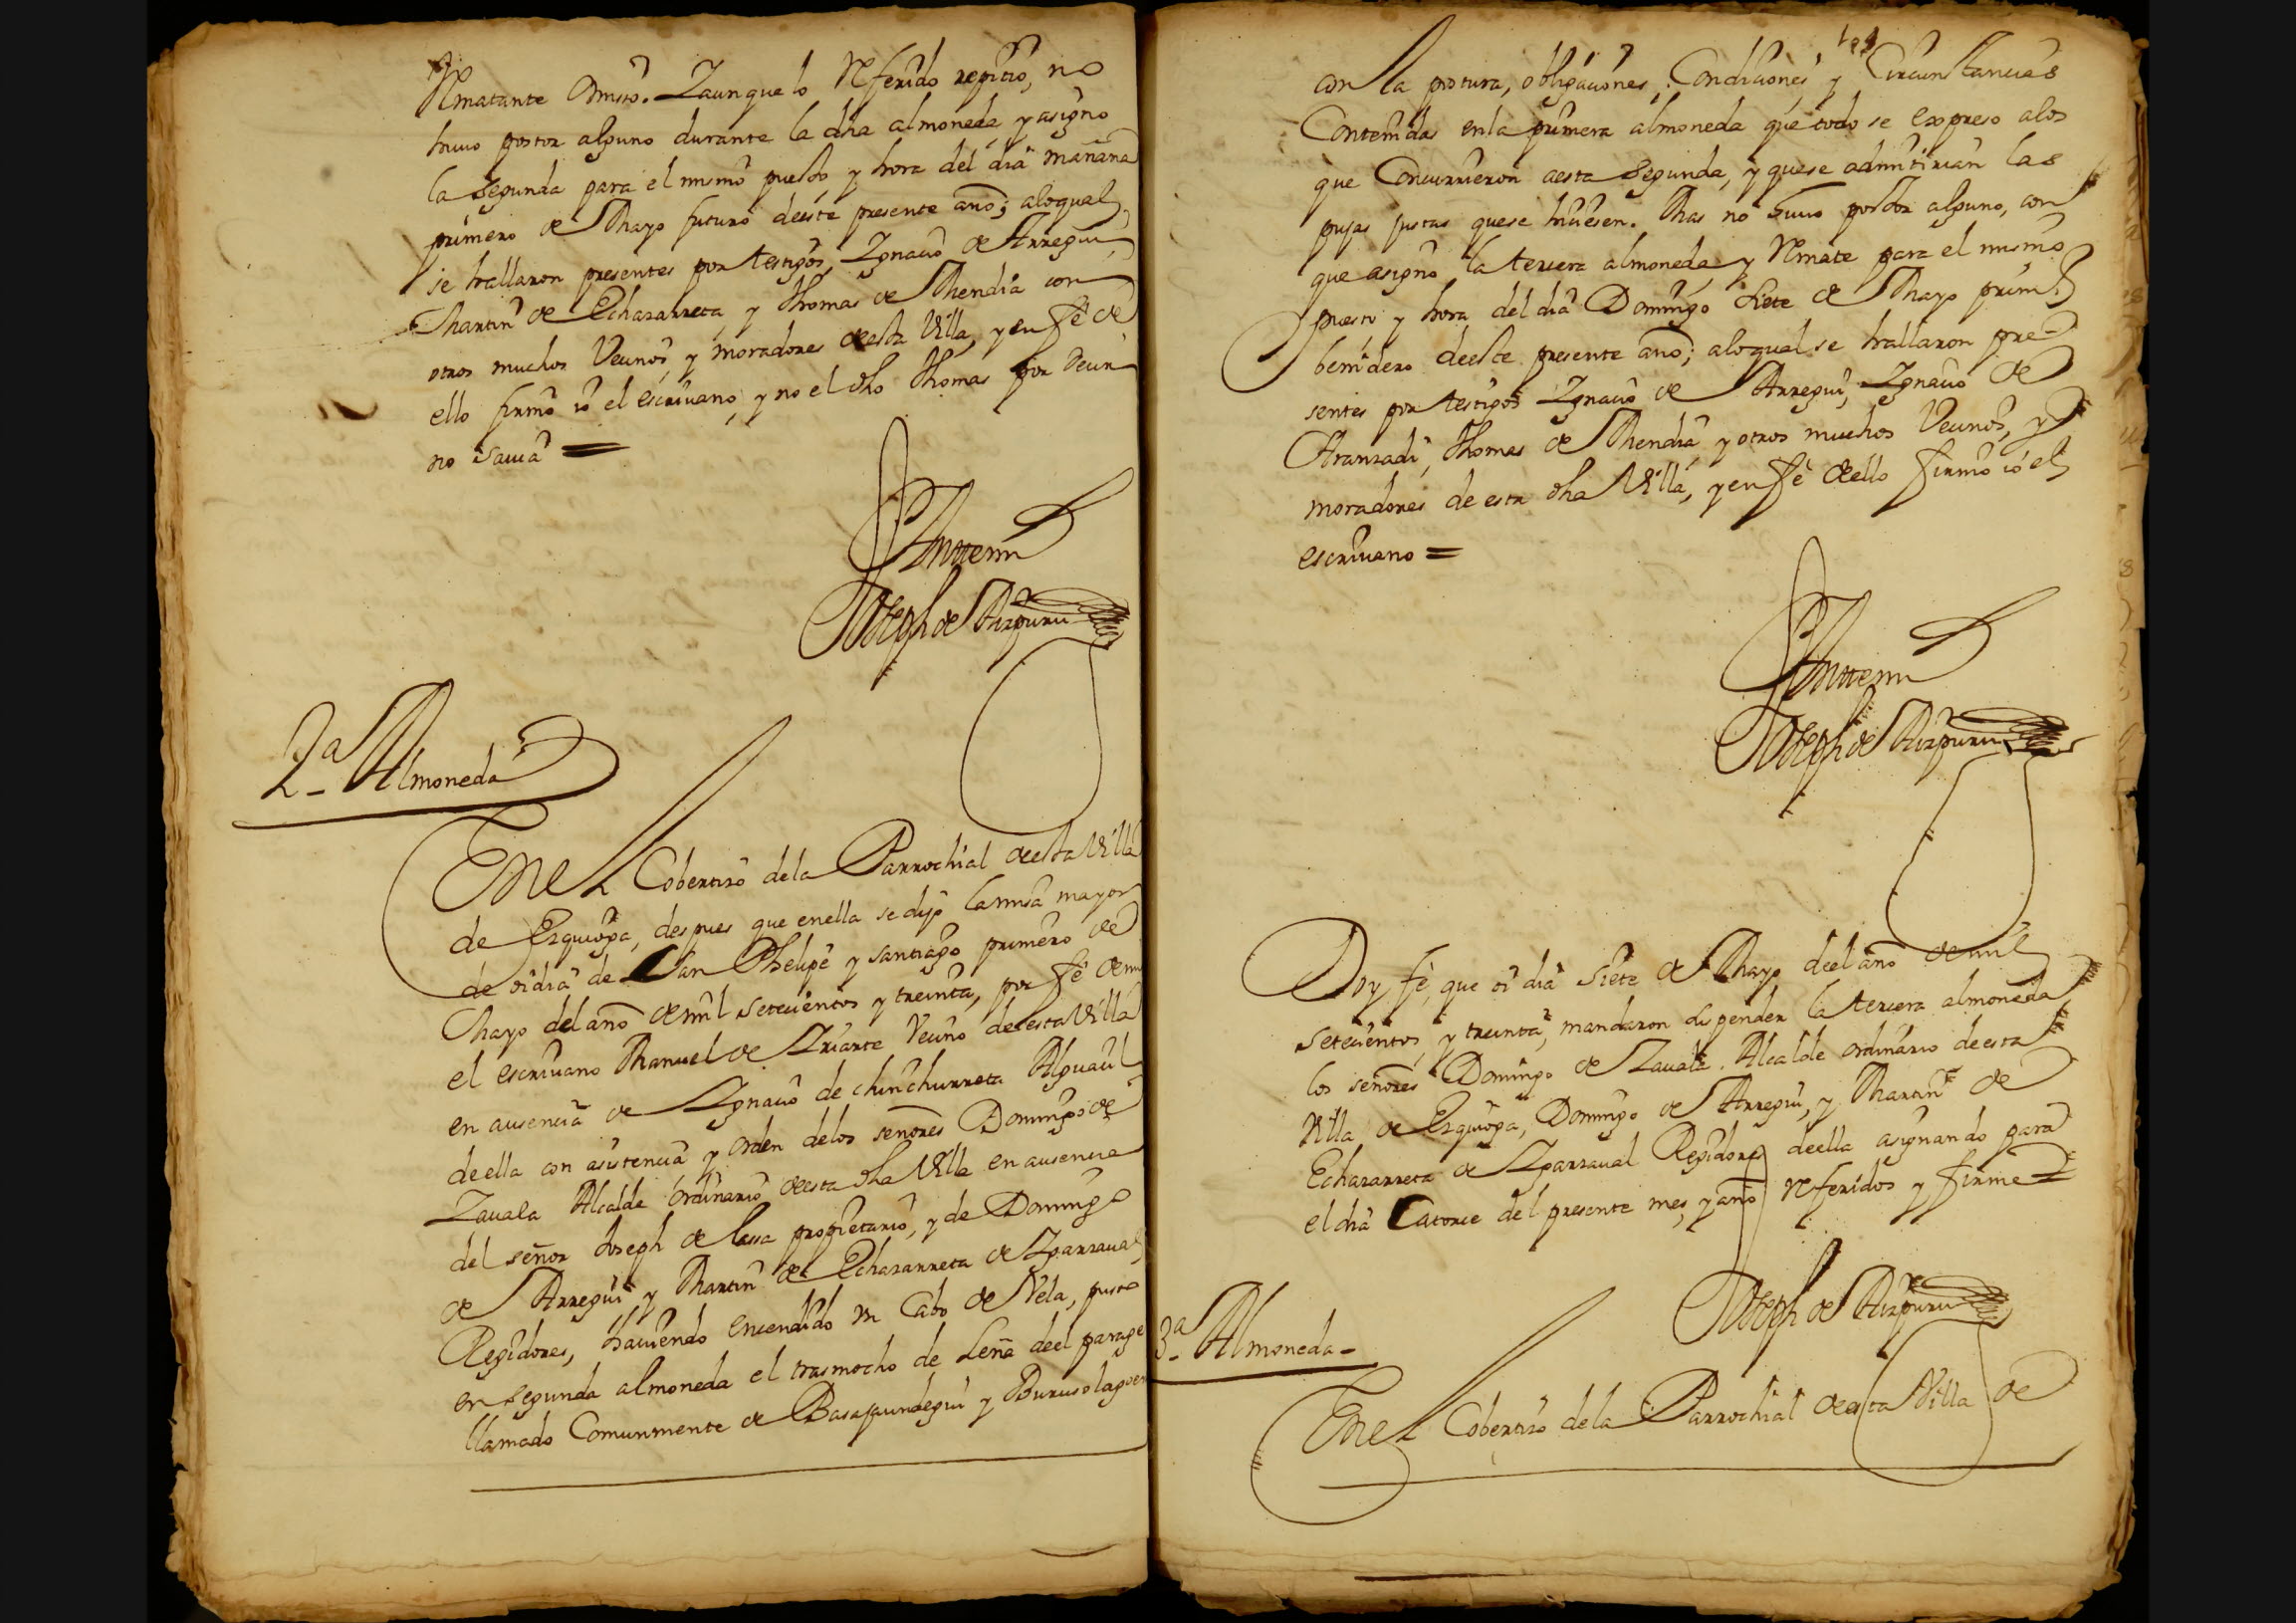 Rematante Omiso. Iaunque lo Referido repitio, no
huuo postor alguno durante la dha almoneda, y asigno
la segunda para el mismo puesto, y hora del dia mañana
primero de Mayo futuro deeste presente año; aloqual
se hallaron presentes por testigos Ignacio de Arregui,
Martin de Echazarreta, y Thomas de Mendia con
otros muchos Vecinos, y moradores de esta Villa, y en fè de
ello firmè io el escriuano, y no el dho Thomas por decir
no sauia =
Antemi
Joseph de Aizpuru
2ª Almoneda
En el Cobertizo dela Parrochial deesta Villa
de Ezquioga, despues que enella se dijo la misa mayor
de oi dia de San Phelipe y santiago primero de
Mayo del año de mil setecientos y treinta, por fè de mi
el escriuano Manuel de Iriarte Vecino de esta Villa
en ausencia de Ignacio de chinchurreta Alguacil
deella con asistencia y orden delos señores Domingo de
Zauala Alcalde ordinario deesta dha Villa en ausencia
del señor Joseph de Lasa propietario, y de Domingo
de Arregui y Martin de Echazarreta de Izarraual
Regidores, hauiendo encendido vn Cabo de Vela, puso
en segunda almoneda el trasmocho de Leña deel parage
llamado Comunmente de Basajaundegui y Burusolagoen
con la postura, obligaciones, Condiciones, y Circunstancias
Contenidas enla primera almoneda que todo se expreso alos
que Concurrieron aesta segunda, y quese admitirian las
pujas justas quese hiciesen. Mas no huuo postor alguno, con
que asigno la tercera almoneda, y Remate para el mismo
puesto y hora del dia Domingo siete de Mayo primº
benidero deeste presente año; aloqual se hallaron pre-
sentes por testigos Ignacio de Arregui, Ignacio de
Aranzadi, Thomas de Mendia, y otros muchos Vecinos, y
moradores de esta dha Villa, y en fè deello firmè io el
escriuano =
Antemi
Joseph de Aizpuru
Doy fè, que oi dia siete de Mayo deel año de mil
setecientos, y treinta, mandaron suspender la tercera almoneda
los señores Domingo de Zauala Alcalde ordinario deesta
Villa de Ezquioga, Domingo de Arregui, y Martin de
Echazarreta de Izarraual Regidores deella asignando para
el dia Catorce del presente mes, y año referidos y firmè =
Joseph de Aizpuru
3ª Almoneda
En el Cobertizo dela Parrochial deesta Villa de